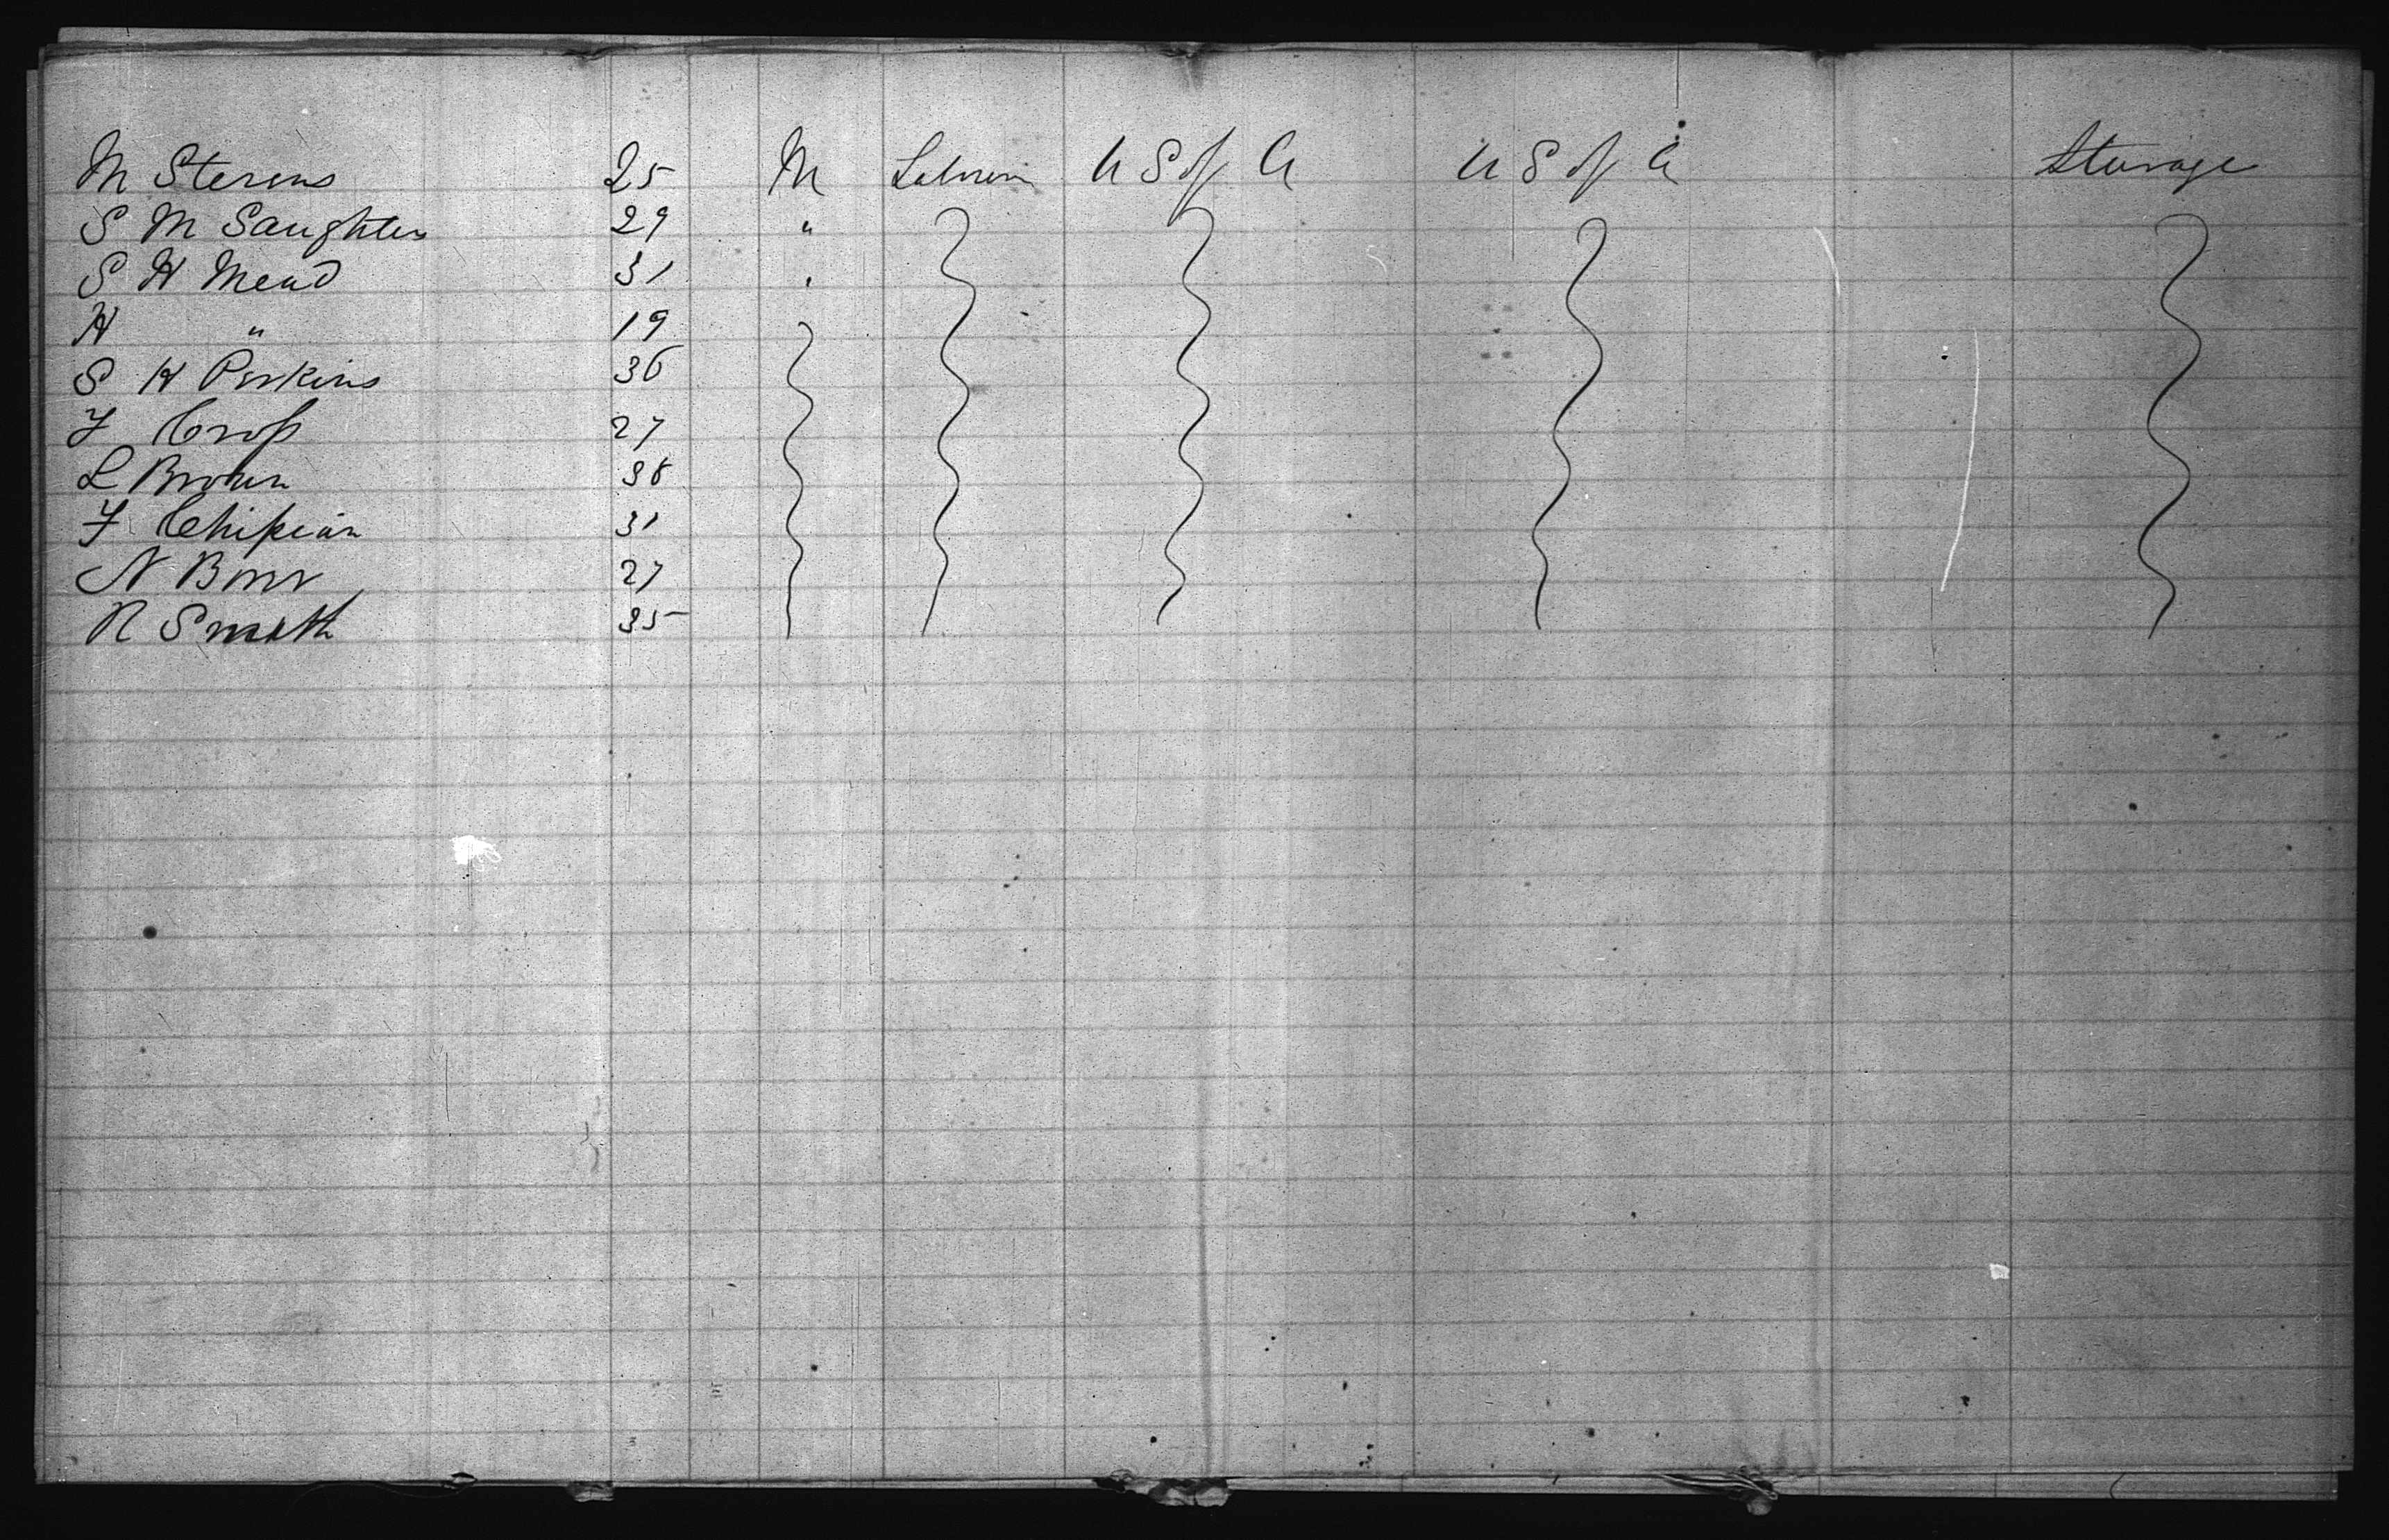 M Stevens 25 M Laborer U S of A U S of A Steerage
S M Saughter 29 "
S H Mead 31 "
H " 19
S H Perkins 36
F Cross 27
L Brown 38
F Chipian 31
N 27
R Smith 35